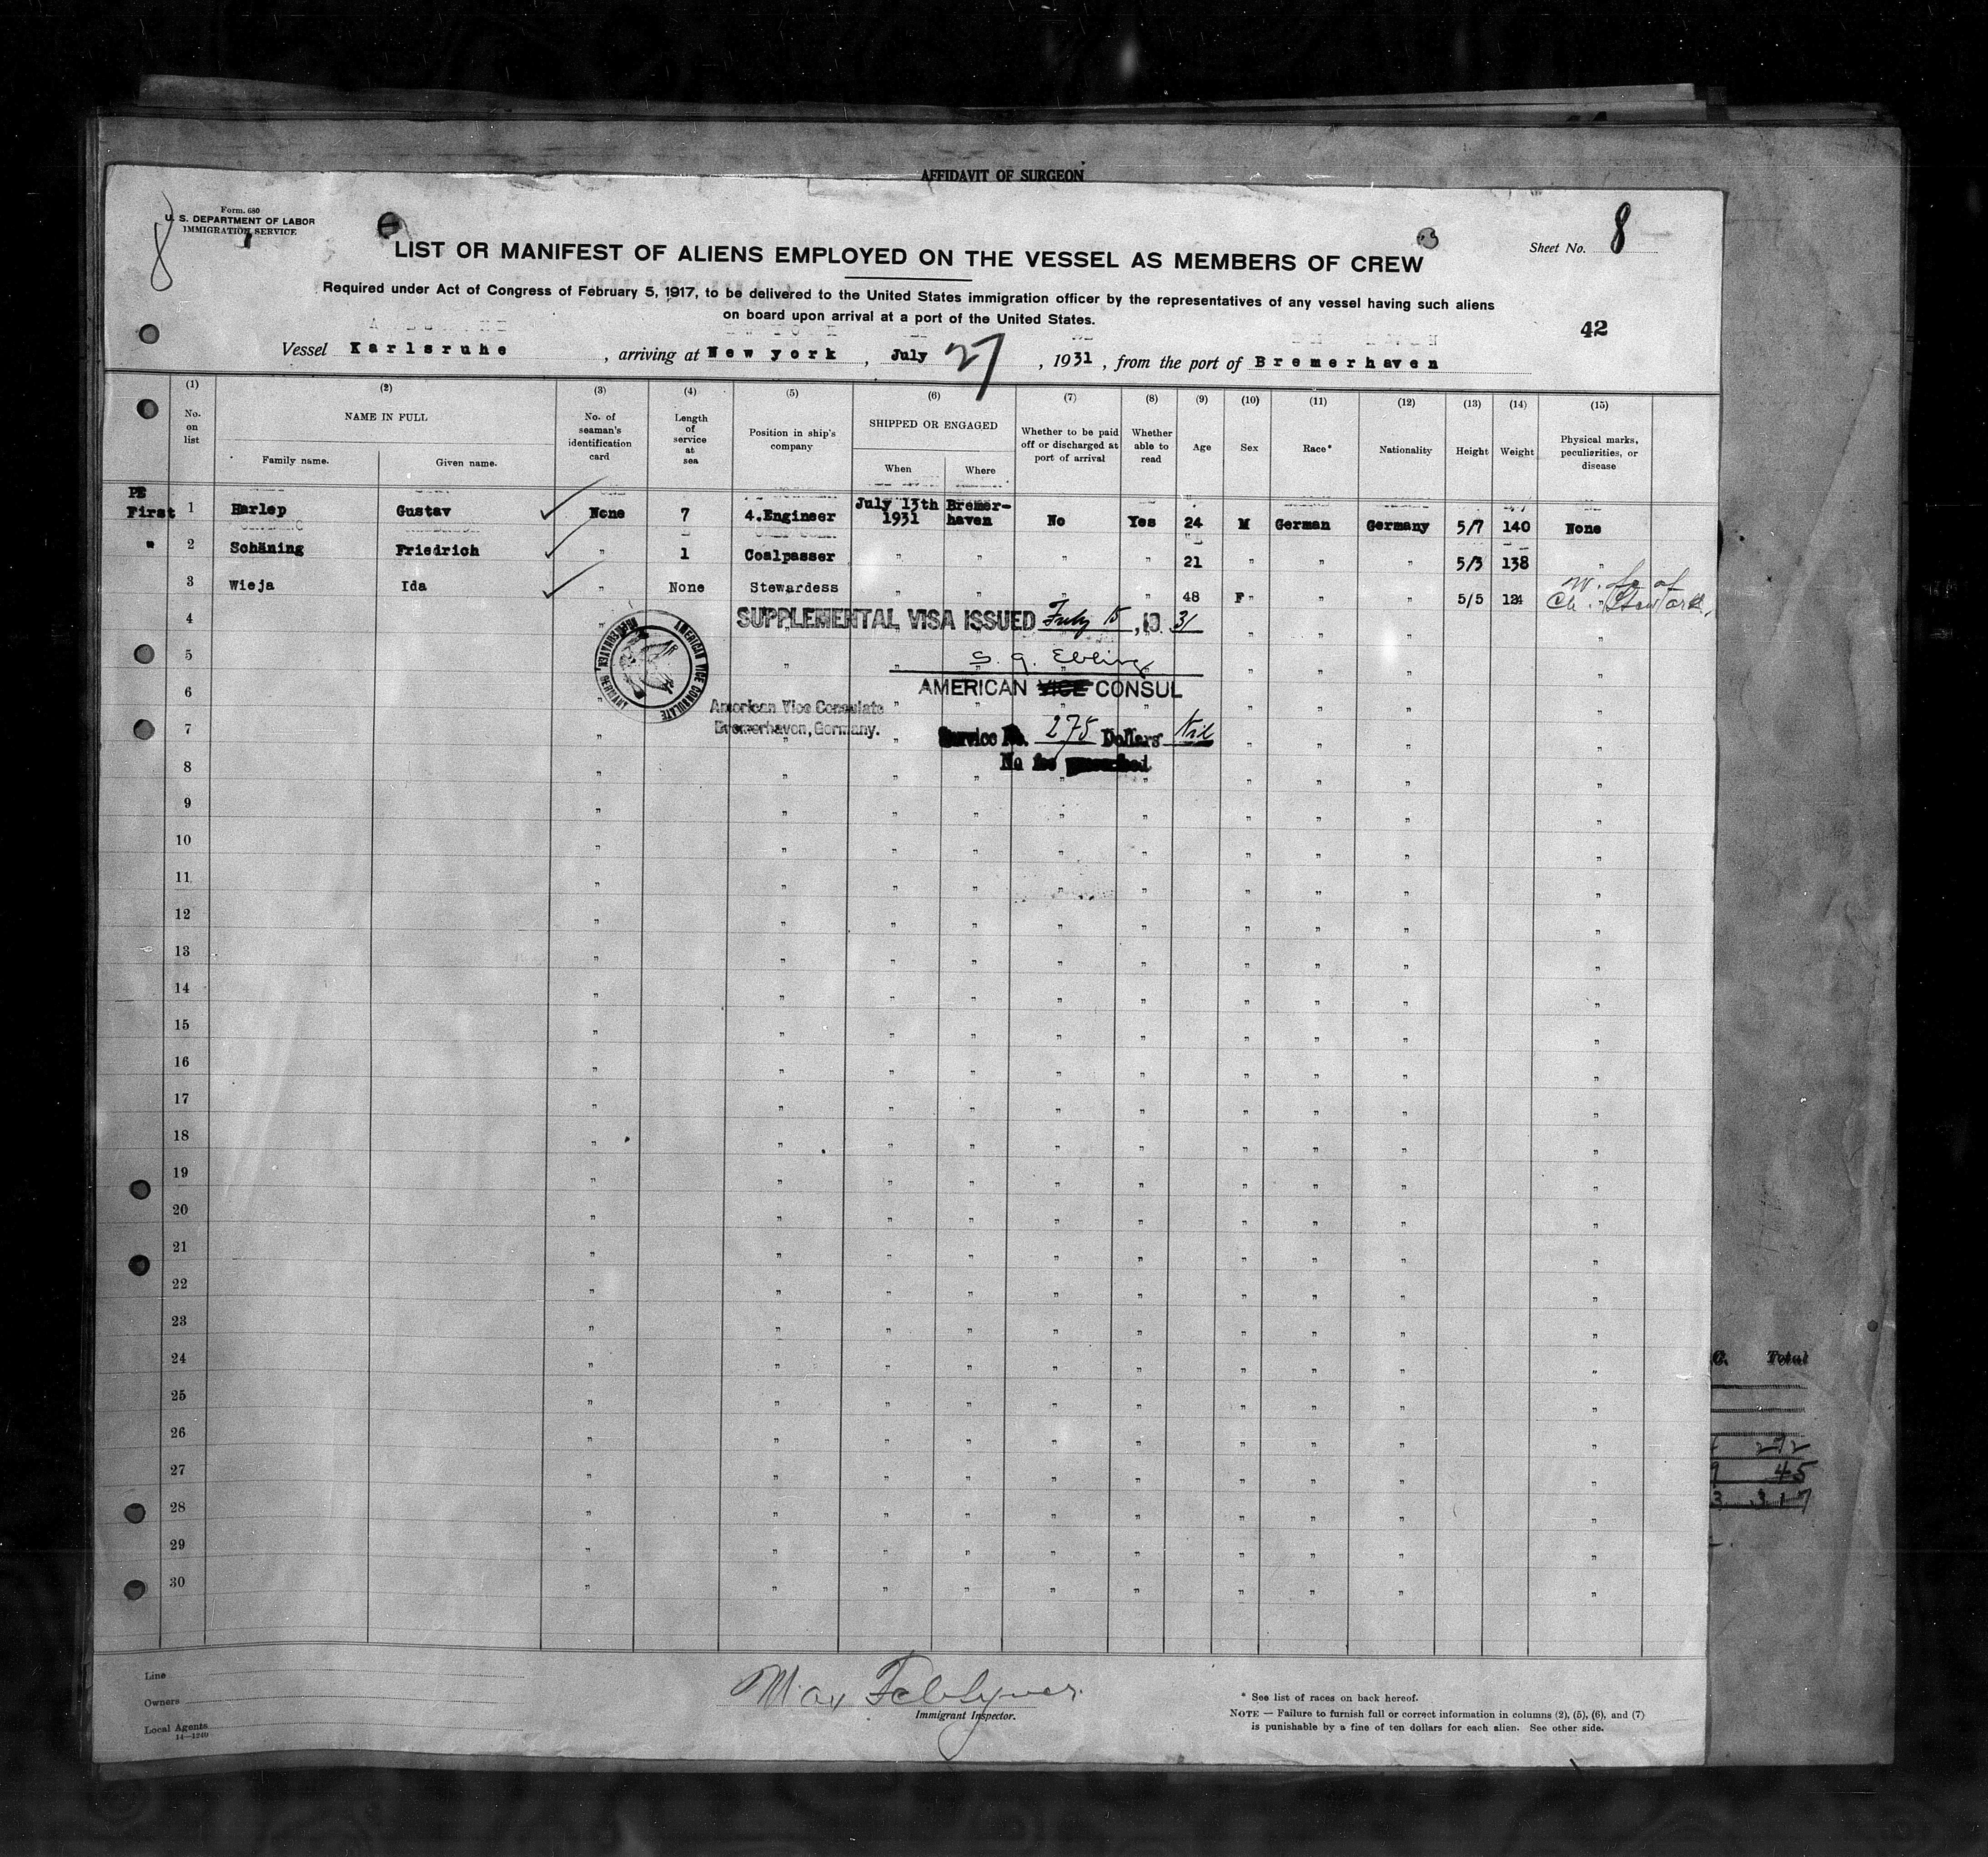 AFFIDAVIT OF SURGEON
Form. 680
U. S. DEPARTMENT OF LABOR
IMMIGRATION SERVICE
8
Sheet No. 8
LIST OR MANIFEST OF ALIENS EMPLOYED ON THE VESSEL AS MEMBERS OF CREW
Required under Act of Congress of February 5, 1917, to be delivered to the United States immigration officer by the representatives of any vessel having such aliens
on board upon arrival at a port of the United States.
42
Vessel Karlsruhe , arriving at New york , July 27 , 1931 , from the port of Bremerhaven
(1) (2) (3) (4) (5) (6) (7) (8) (9) (10) (11) (12) (13) (14) (15)
No. on list
NAME IN FULL
Family name. Given name.
No. of seaman's identification card
Length of service at sea
Position in ship's company
SHIPPED OR ENGAGED
When Where
Whether to be paid off or discharged at port of arrival
Whether able to read
Age
Sex
Race*
Nationality
Height
Weight
Physical marks, peculiarities, or disease
PE
First 1 Harlep Gustav None 7 4.Engineer July 13th 1931 Bremer-haven No Yes 24 M German Germany 5/7 140 None
" 2 Schäning Friedrich " 1 Coalpasser " " " " 21 " " " 5/3 138 "
3 Wieja Ida " None Stewardess " " " " 48 F " " " 5/5 124 Wife of Ch. Steward
4 SUPPLEMENTAL VISA ISSUED July 15, 1931
5
6 AMERICAN VICE CONSUL
AMERICAN VICE CONSULATE
BREMERHAVEN, GERMANY
American Vice Consulate
Bremerhaven, Germany.
7 Service No. 275 Dollars Nil
No fee prescribed
8
9
10
11
12
13
14
15
16
17
18
19
20
21
22
23
24
25
26
27
28
29
30
Total
272
45
317
Line
Owners
Local Agents
14—1240
Max
Immigrant Inspector.
* See list of races on back hereof.
NOTE — Failure to furnish full or correct information in columns (2), (5), (6), and (7)
is punishable by a fine of ten dollars for each alien. See other side.